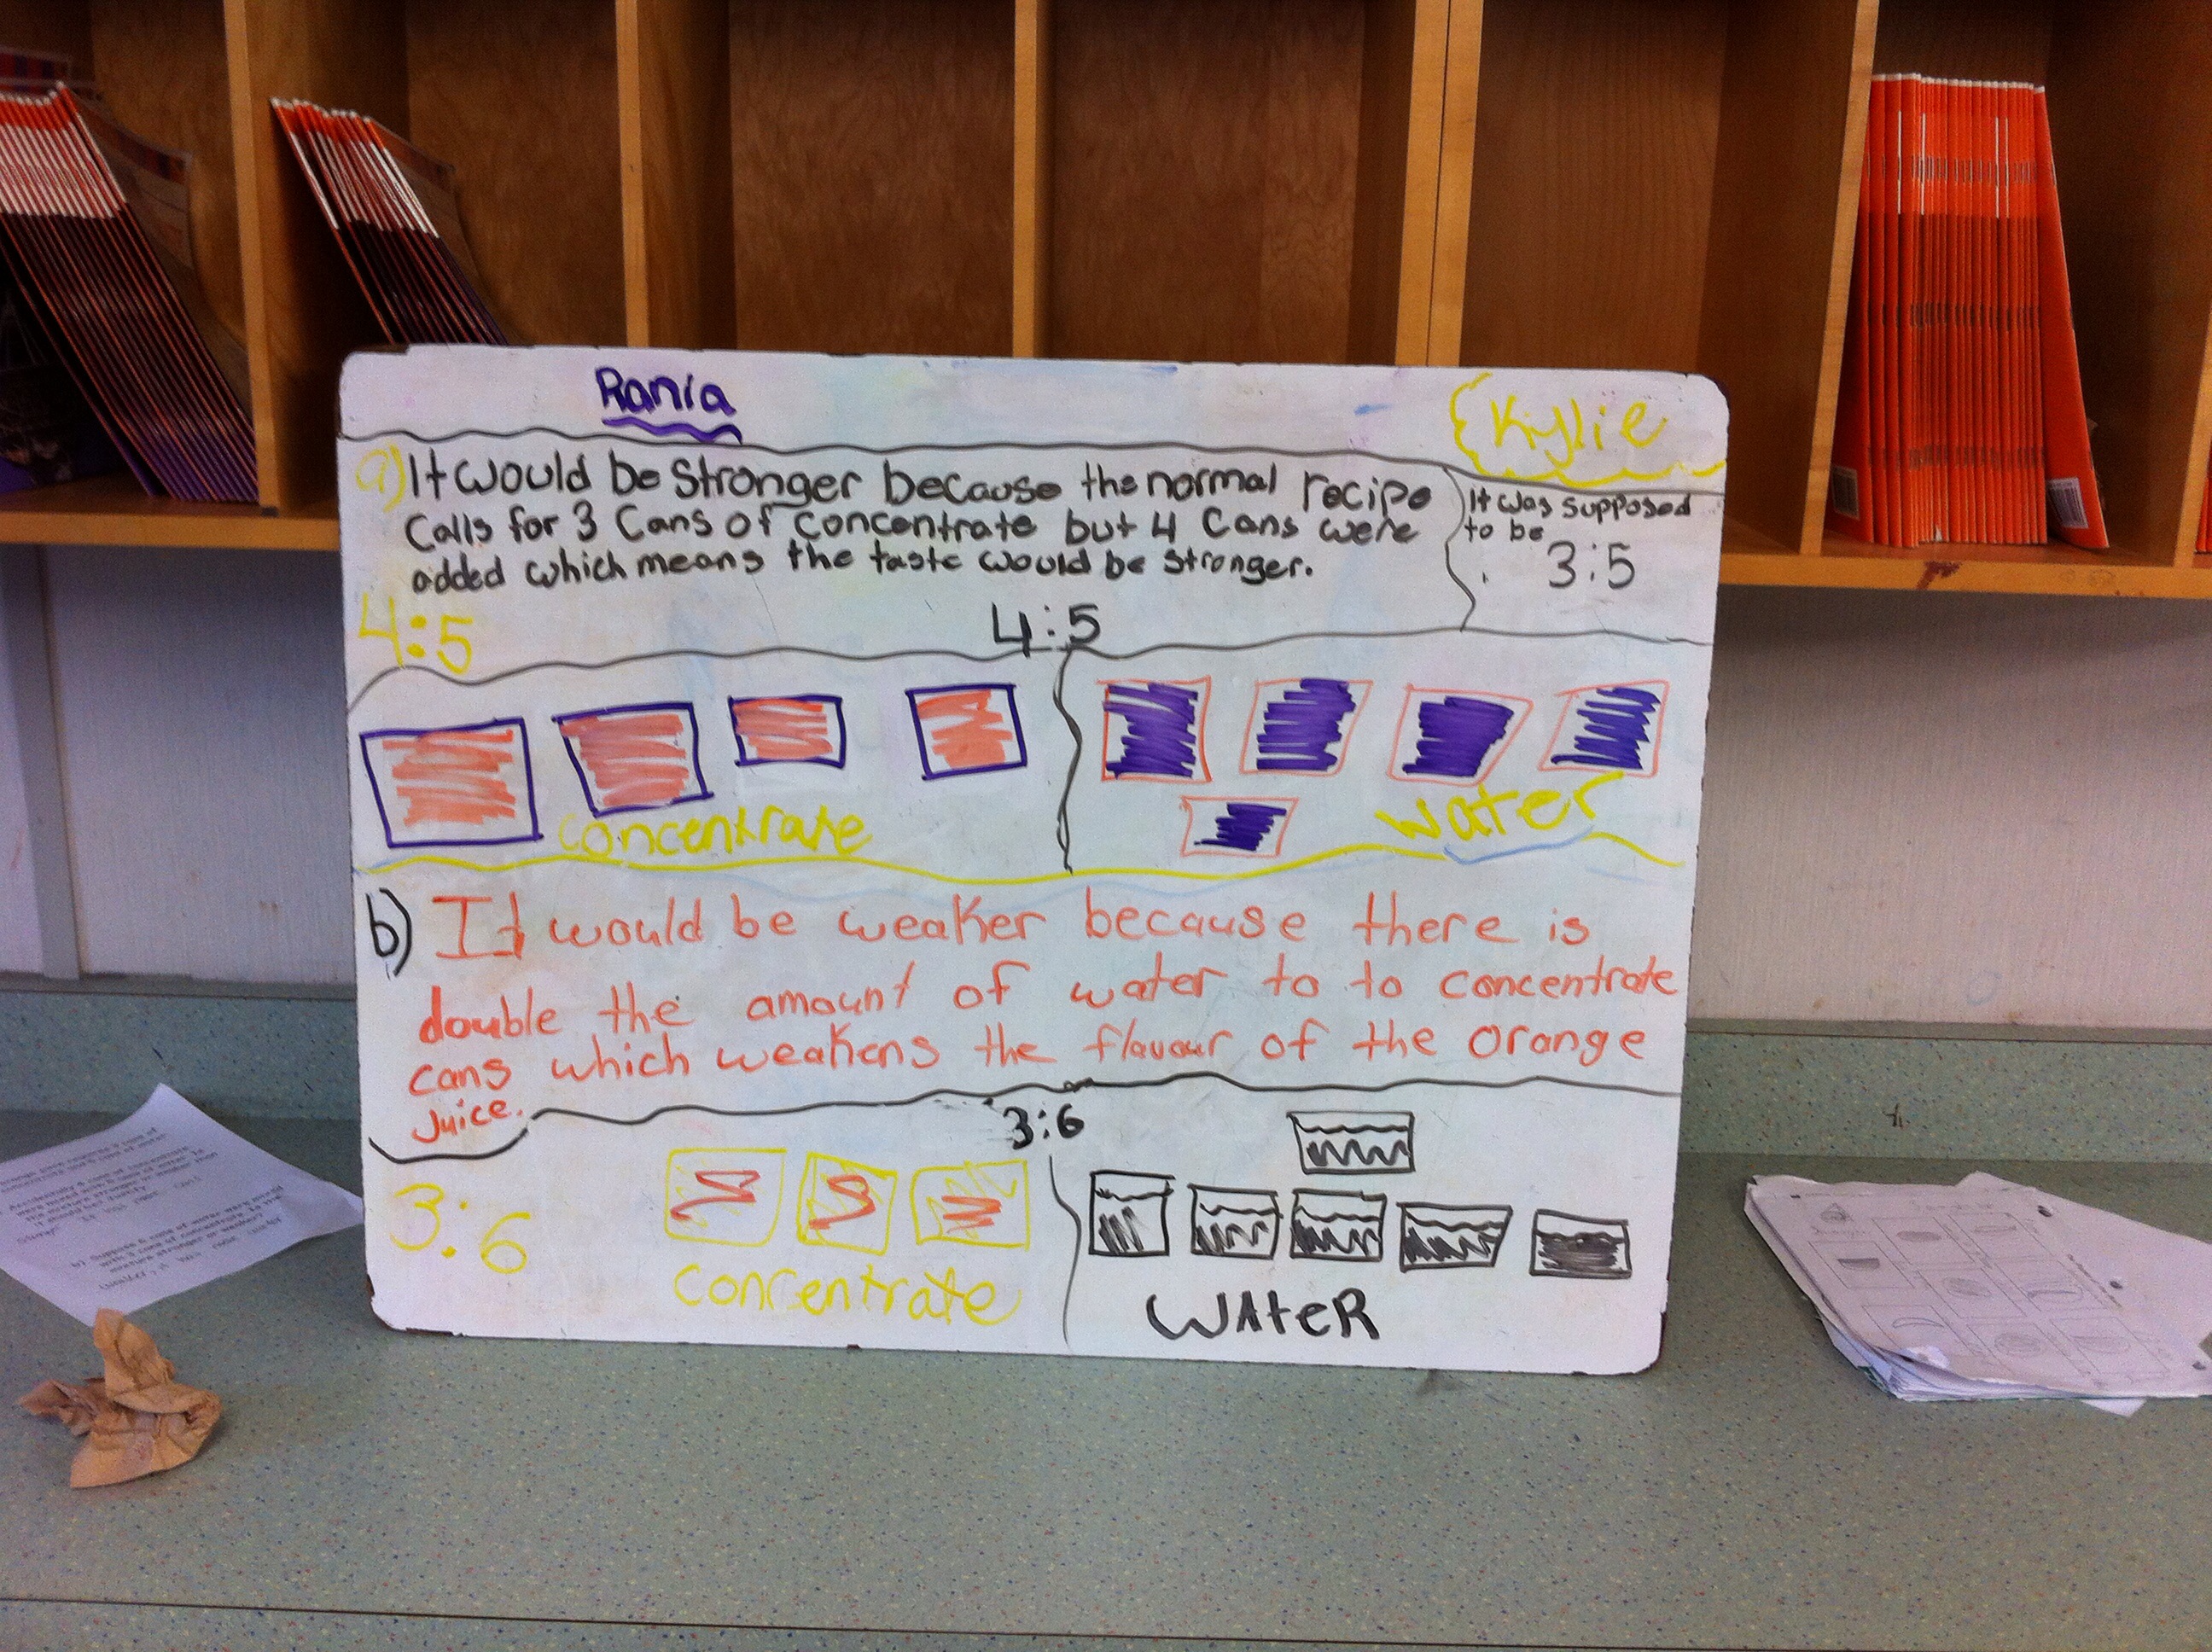 Rania
Kylie
a) It would be stronger because the normal recipe
calls for 3 cans of concentrate but 4 cans were
added which means the taste would be stronger.
It was supposed
to be
3:5
4:5
4:5
concentrate
water
b) It would be weaker because there is
double the amount of water to to concentrate
cans which weakens the flavour of the orange
juice.
3:6
3:6
concentrate
WAteR